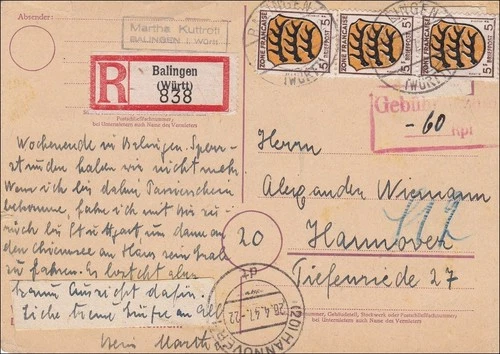 Absender:
Martha Kuttroff
BALINGEN i. Württ.
R
Balingen
(Württ)
838
Postschließfachnummer,
bei Untermietern auch Name des Vermieters
Wochenende in Balingen. Sperr-
stunden halten wir nicht mehr
Wenn ich bis dahin Passierschein
bekomme, fahre ich mit
rück bis Stuttgart um dann an
den Chiemsee an Hans sein Grab
zu fahren. Es besteht aber
kaum Aussicht dafür.
Liebe Grüße an all
Martha
ZONE FRANÇAISE
BRIEFPOST
5 Pf
ZONE FRANÇAISE
BRIEFPOST
5 Pf
ZONE FRANÇAISE
BRIEFPOST
5 Pf
BALINGEN
(WÜRTT)
Gebühr
-60
Rpf
Herrn
Alexander Wiemann
20
Hannover
Tiefenriede 27
(20) HANNOVER
28.4.47. 22
Straße, Hausnummer, Gebäudeteil, Stockwerk oder Postschließfachnummer
bei Untermietern auch Name des Vermieters